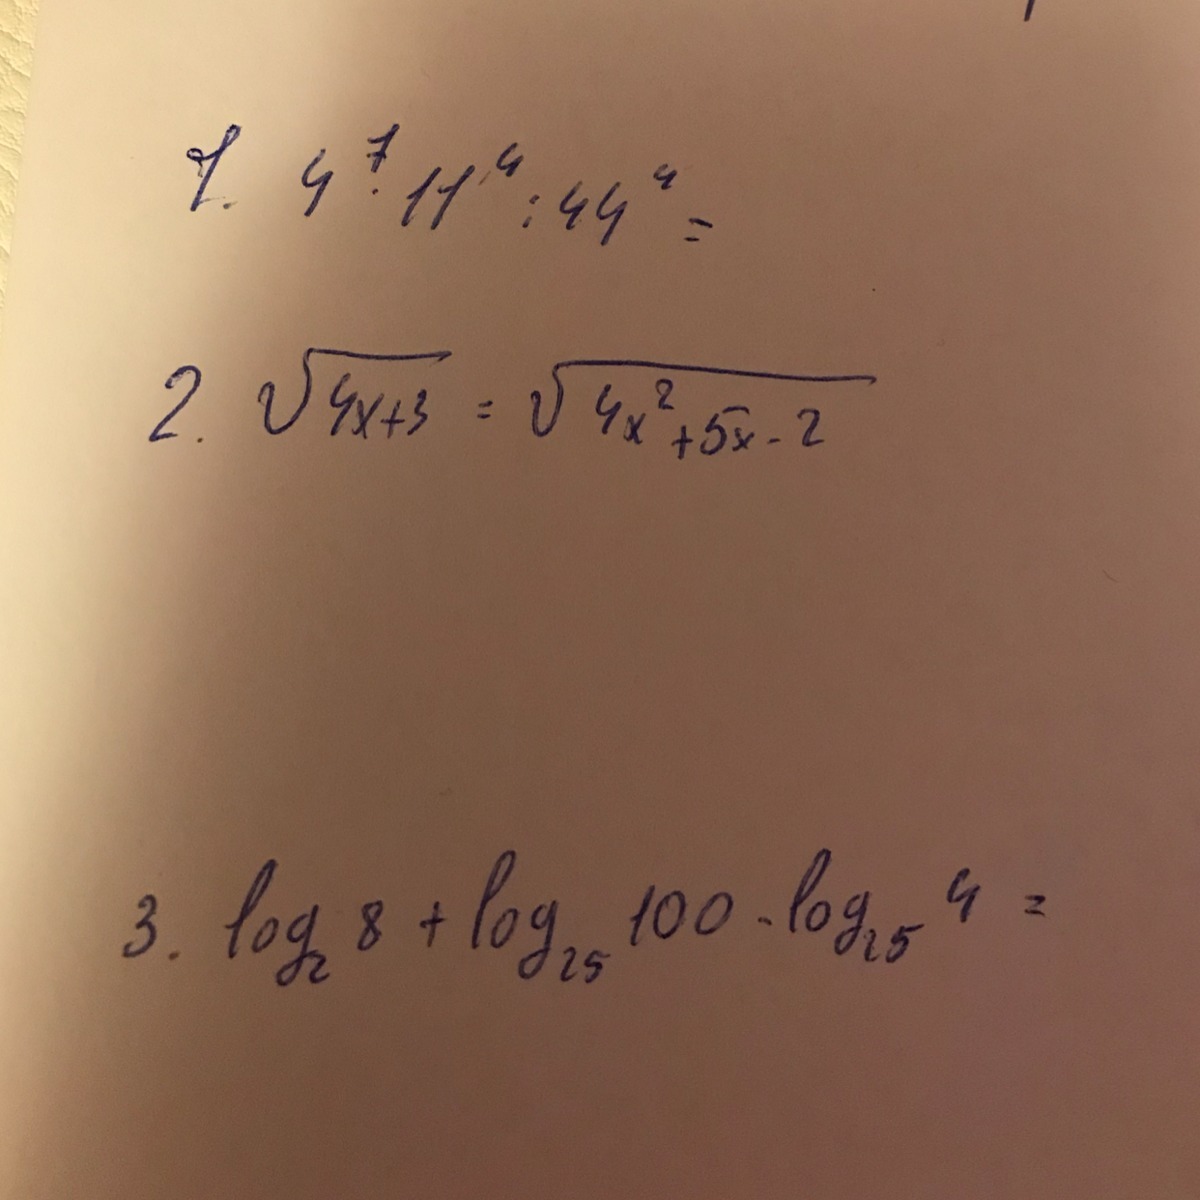 1. 4⁷ · 11⁴ : 44⁴ =
2. √(4x+3) = √(4x²+5x-2)
3. log₂ 8 + log₂₅ 100 - log₂₅ 4 =